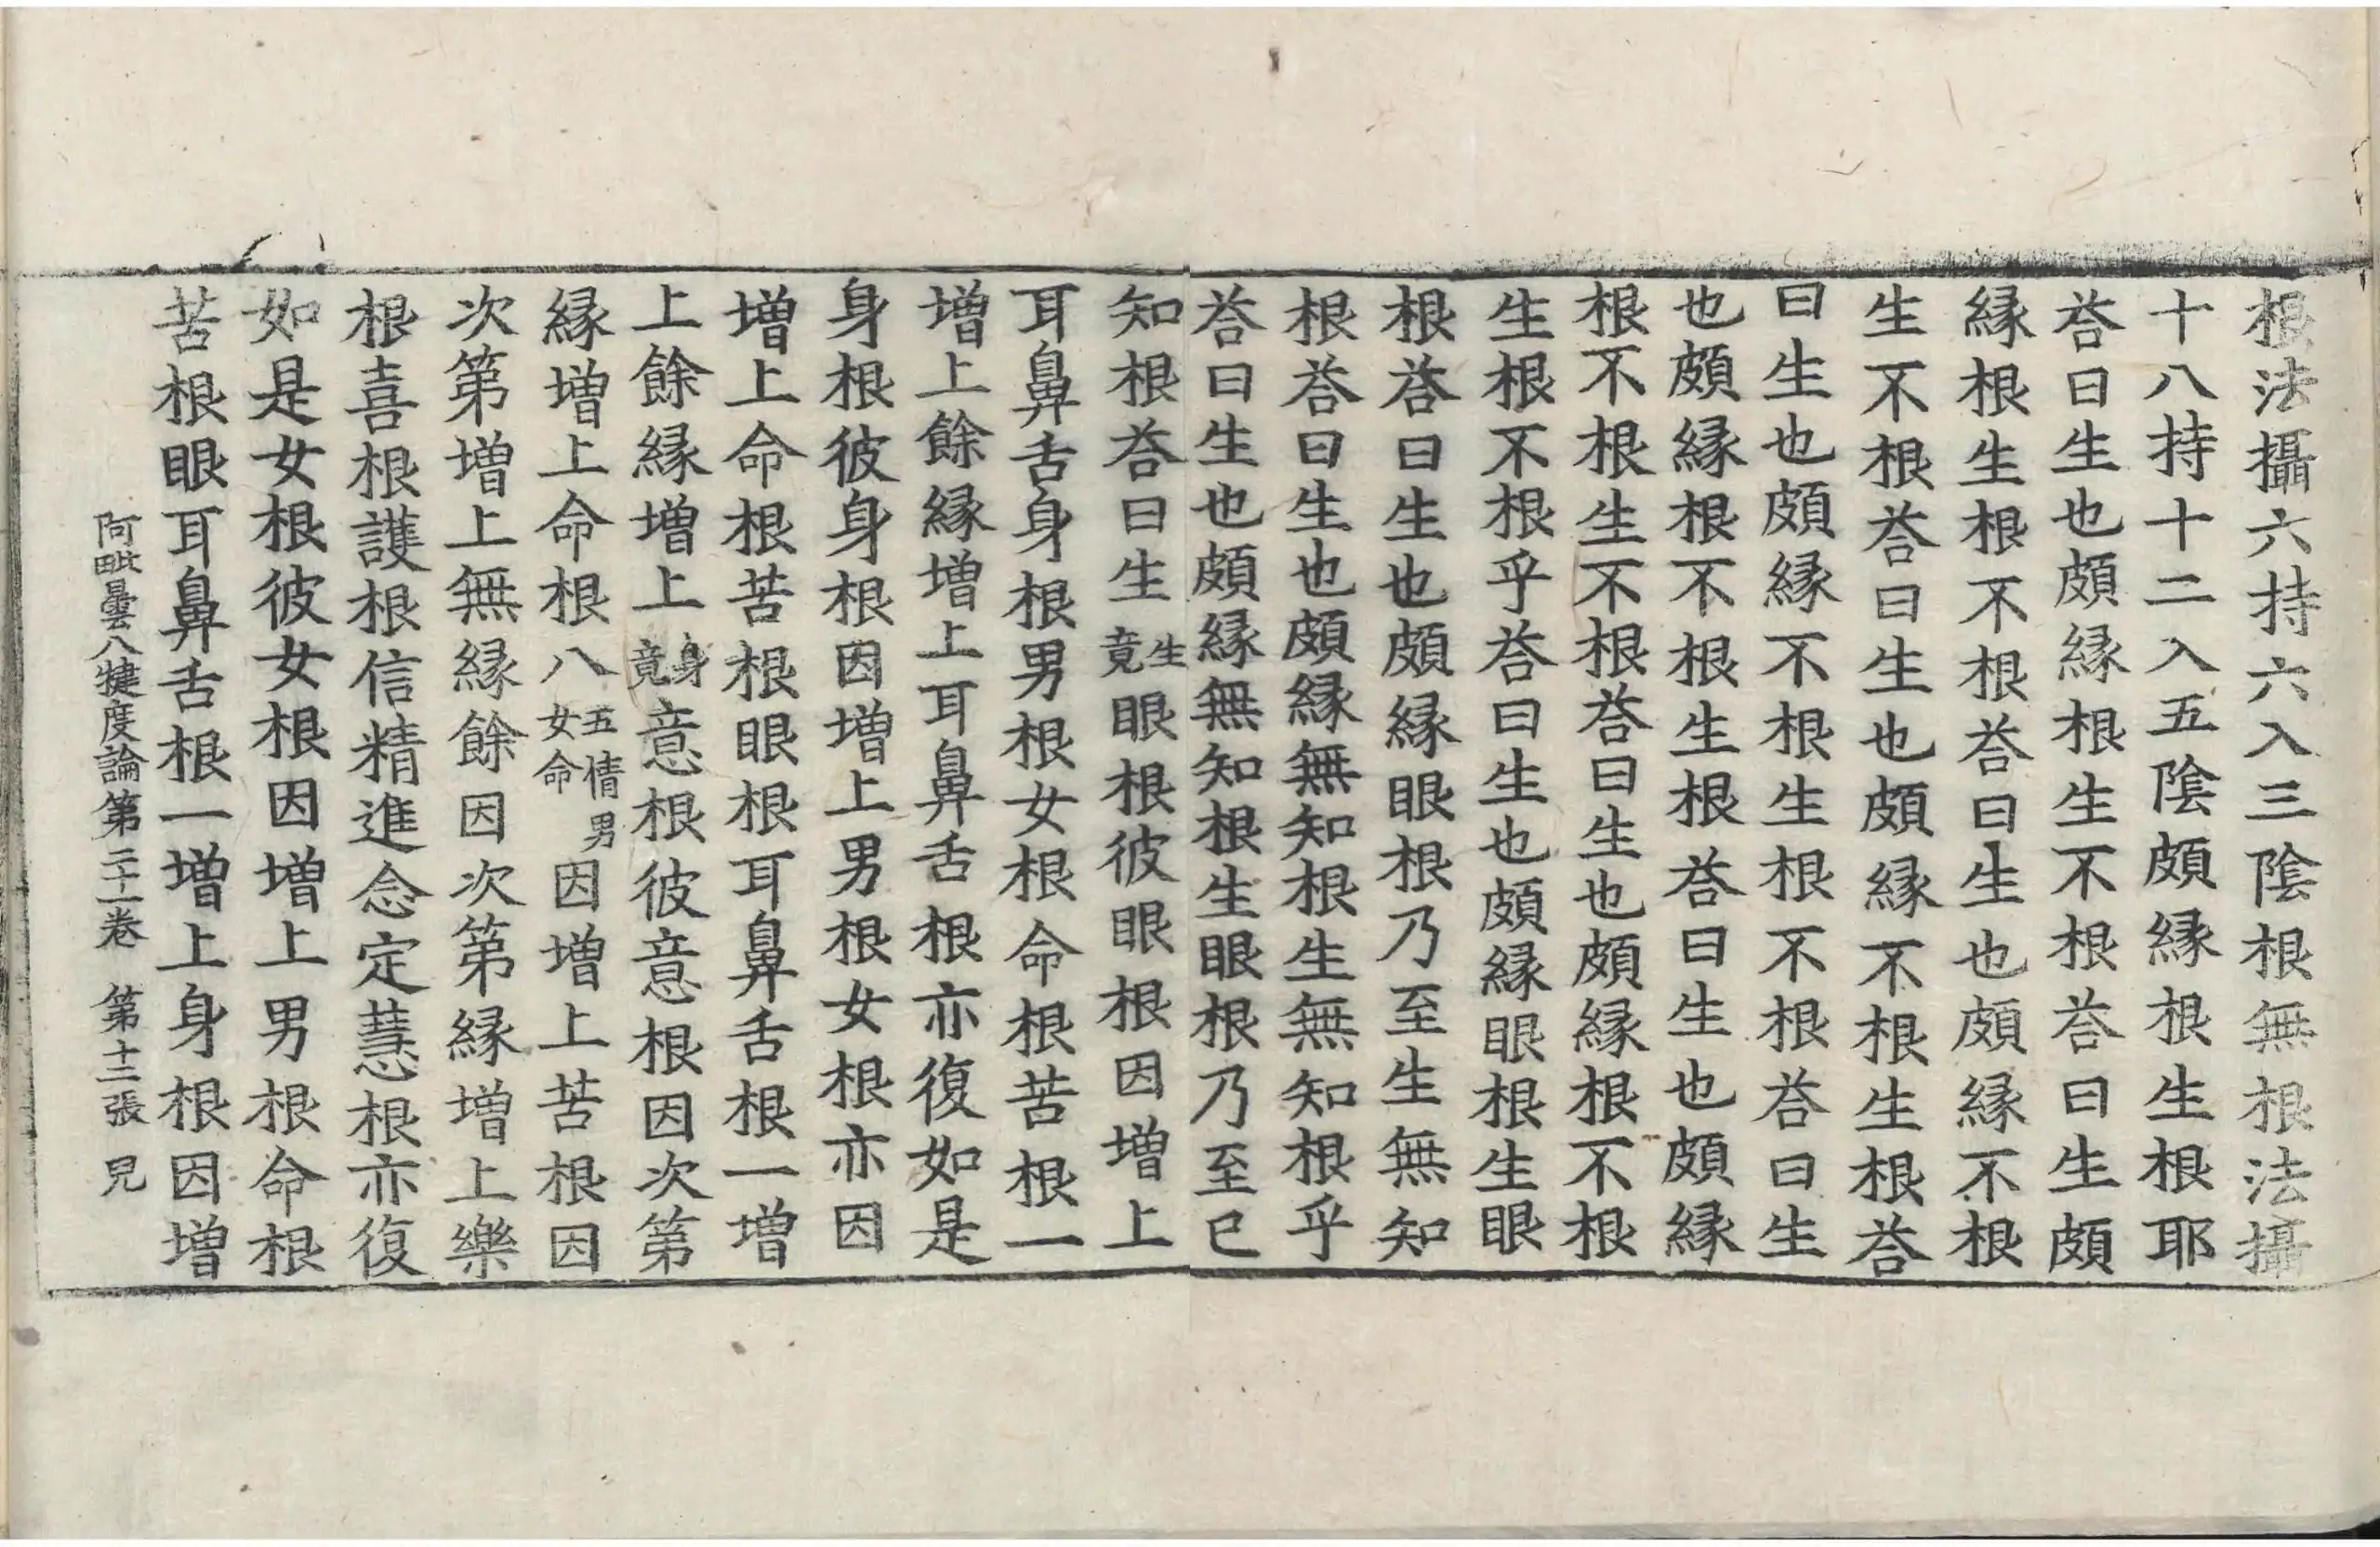 根法攝六持六入三陰根無根法攝
十八持十二入五陰頗緣根生根耶
荅曰生也頗緣根生不根荅曰生頗
緣根生根不根荅曰生也頗緣不根
生不根荅曰生也頗緣不根生根荅
曰生也頗緣不根生根不根荅曰生
也頗緣根不根生根荅曰生也頗緣
根不根生不根荅曰生也頗緣根不根
生根不根乎荅曰生也頗緣眼根生眼
根荅曰生也頗緣眼根乃至生無知
根荅曰生也頗緣無知根生無知根乎
荅曰生也頗緣無知根生眼根乃至已
知根荅曰生生竟眼根彼眼根因增上
耳鼻舌身根男根女根命根苦根一
增上餘緣增上耳鼻舌根亦復如是
身根彼身根因增上男根女根亦因
增上命根苦根眼根耳鼻舌根一增
上餘緣增上身竟意根彼意根因次第
緣增上命根八五情男女命因增上苦根因
次第增上無緣餘因次第緣增上樂
根喜根護根信精進念定慧根亦復
如是女根彼女根因增上男根命根
苦根眼耳鼻舌根一增上身根因增
阿毗曇八犍度論第二十一卷 第十二張 兄